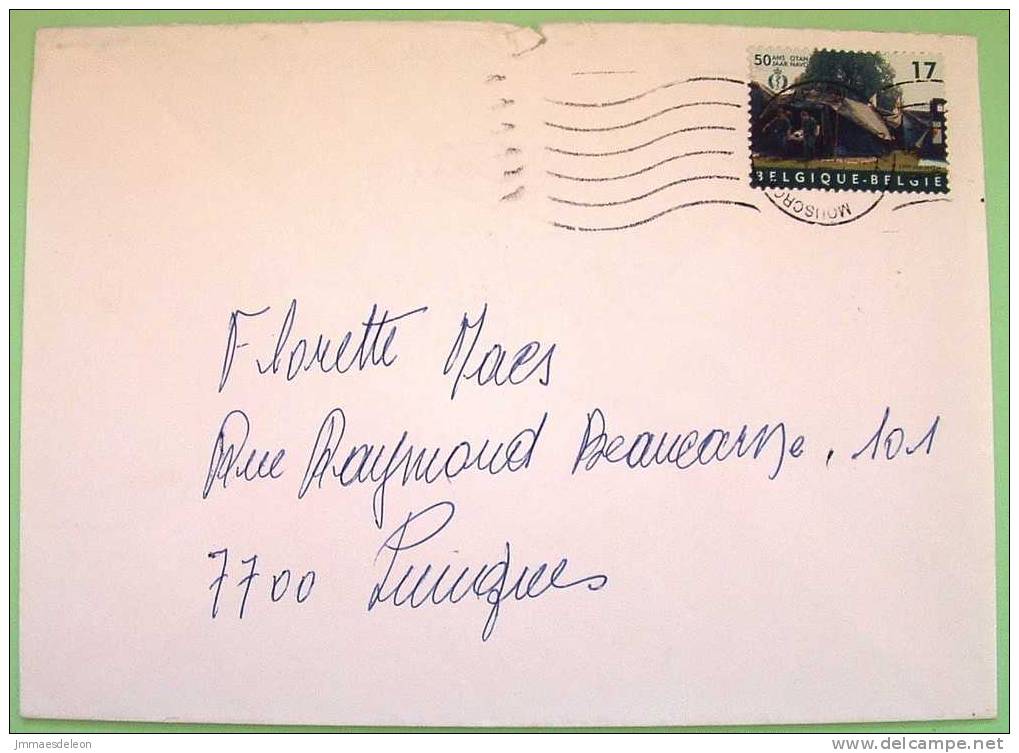 50 ANS OTAN
JAAR NAVO
17
BELGIQUE-BELGIE
MOUSCRO
Florette Maes
Rue Raymond Beaucarne, 101
7700 Luingnes
jmmaesdeleon
www.delcampe.net